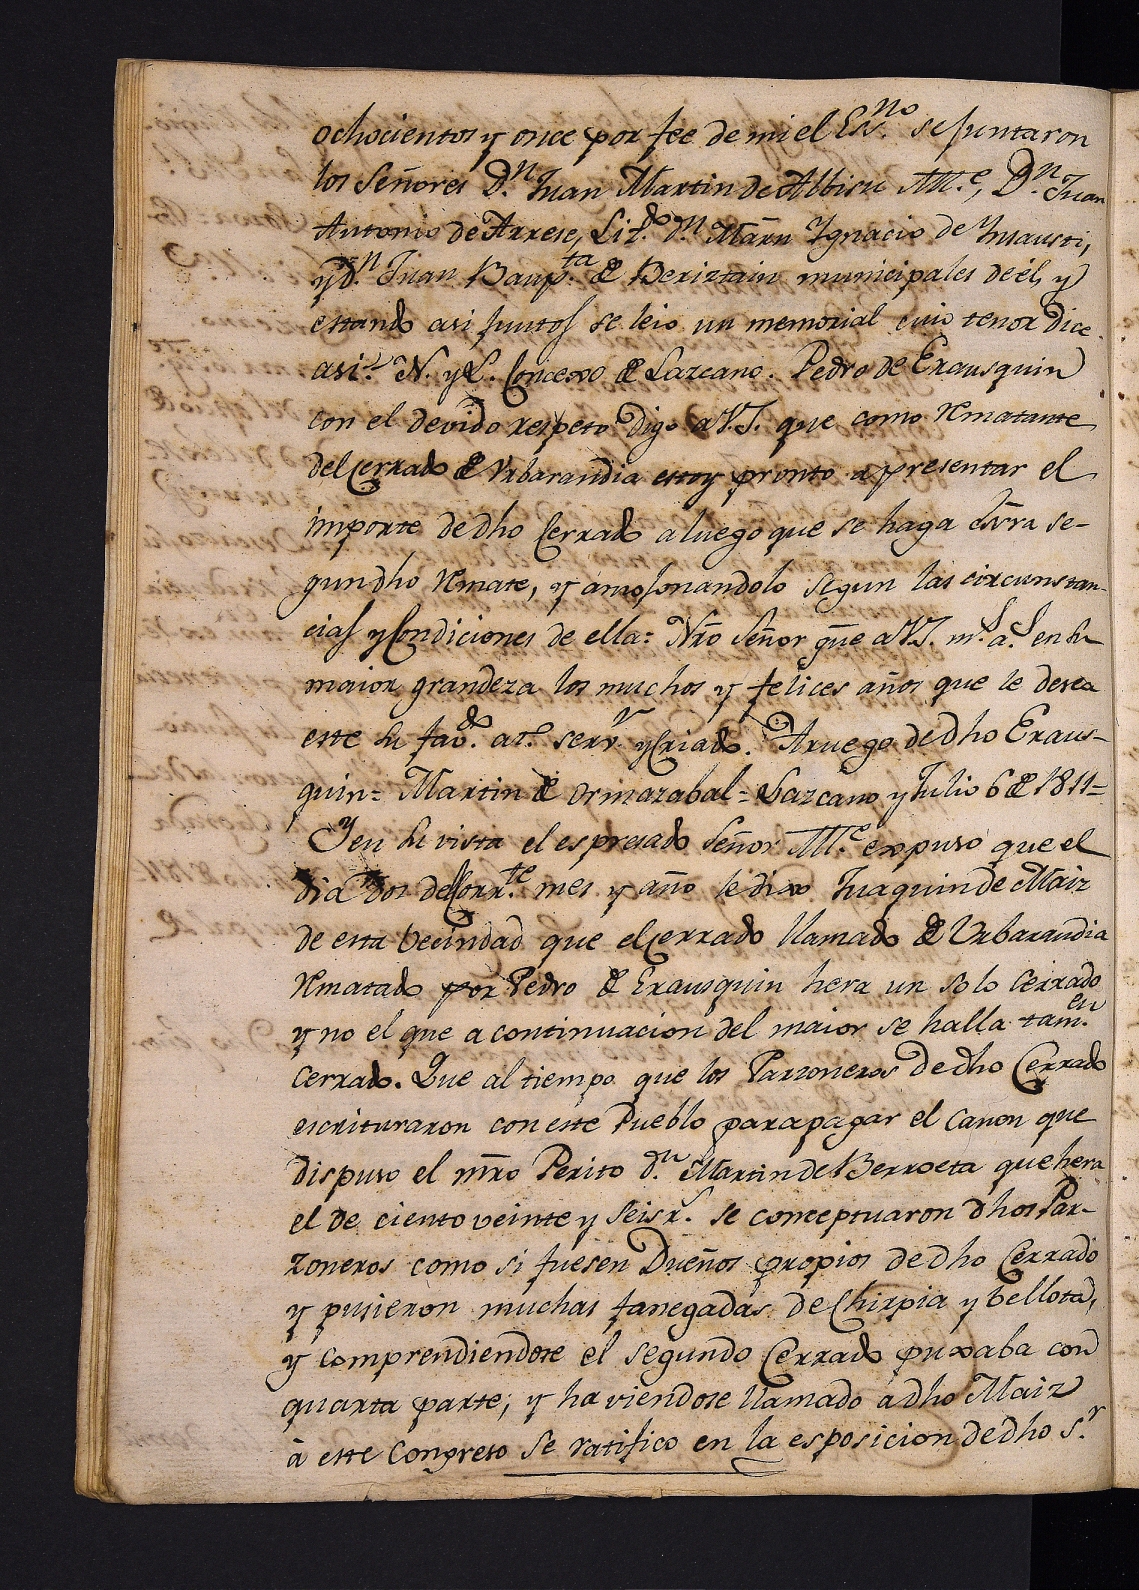 ochocientos y once por fee de mi el Esno. se juntaron
los Señores Dn. Juan Martin de Albisu Alle., Dn. Juan
Antonio de Arrese, Lizdo. dn Mārn Ygnacio de Ynausti,
y dn. Juan Baupta. de Beriztain municipales de él, y
estando asi juntos se leio un memorial cuio tenor dice
asi= N. y L. Concexo de Lazcano. Pedro de Erausquin
con el devido respeto digo a V.S. que como Rematante
del Cerrado de Urbarandia estoy pronto a presentar el
importe de dho Cerrado a luego que se haga Esvra se-
gun dho Remate, y amojonandolo segun las circunstan-
cias y Condiciones de ella= Nr̄o Señor gūe a V.S. ms. as. en su
maior grandeza los muchos y felices años que le desea
este su favdo. ato. servr. y Criado. Aruego de dho Eraus-
quin= Martin de Ormazabal= Lazcano y Julio 6 de 1811=
Y en su vista el espresado Señor Alle. expuso que el
dia dos del Corrte. mes y año le dixo Juaquin de Maiz
de esta becindad que el cerrado llamado de Urbarandia
Rematado por Pedro de Erausquin hera un solo cerrado
y no el que a continuacion del maior se halla tamen.
cerrado. Que al tiempo que los Parzoneros de dho Cerrado
escrituraron con este Pueblo para pagar el canon que
dispuso el m̄ro Perito dn. Martin de Berroeta que hera
el de ciento veinte y seis rs. se conceptuaron dhos Par-
zoneros como si fuesen Dueños propios de dho Cerrado
y pusieron muchas fanegadas de Chirpia y bellota,
y comprendiendose el segundo Cerrado puxaba con
quarta parte; y haviendose llamado à dho Maiz
à este Congreso se ratifico en la esposicion de dho Sr.